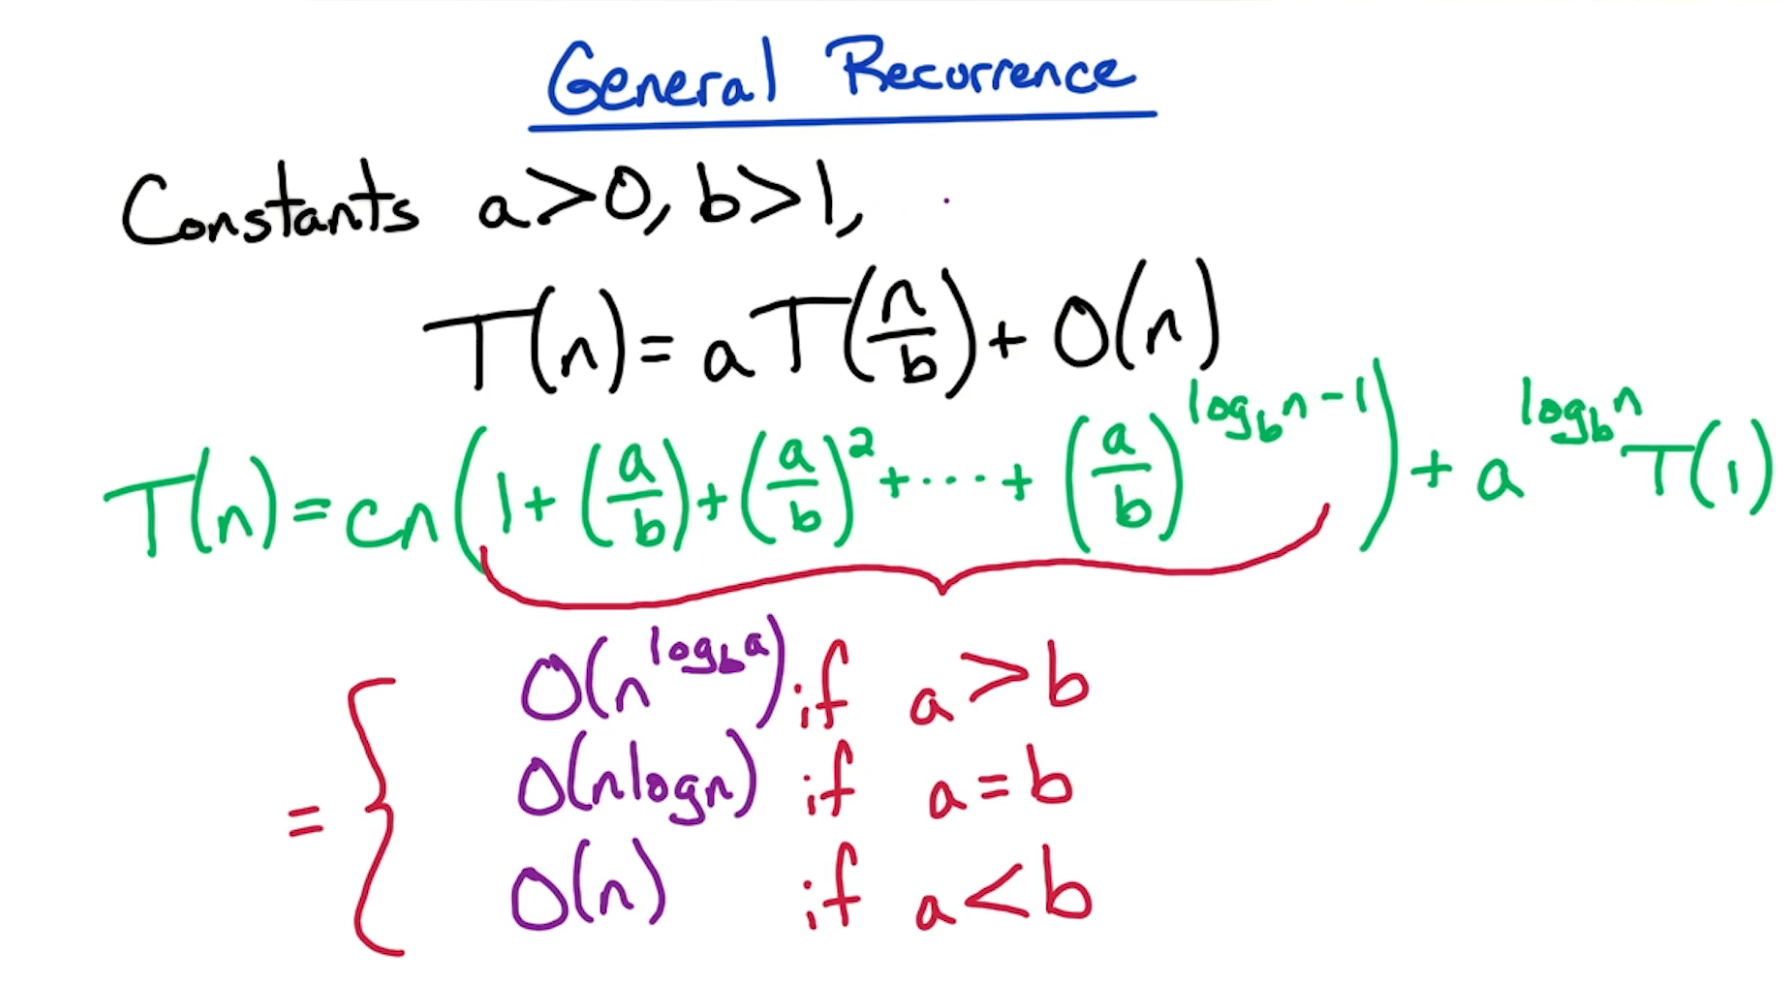 General Recurrence
Constants a>0, b>1,
T(n) = aT(n/b) + O(n)
T(n) = cn(1 + (a/b) + (a/b)^2 + ··· + (a/b)^(log_b n − 1)) + a^(log_b n) T(1)
= { O(n^(log_b a)) if a > b
O(n log n) if a = b
O(n) if a < b